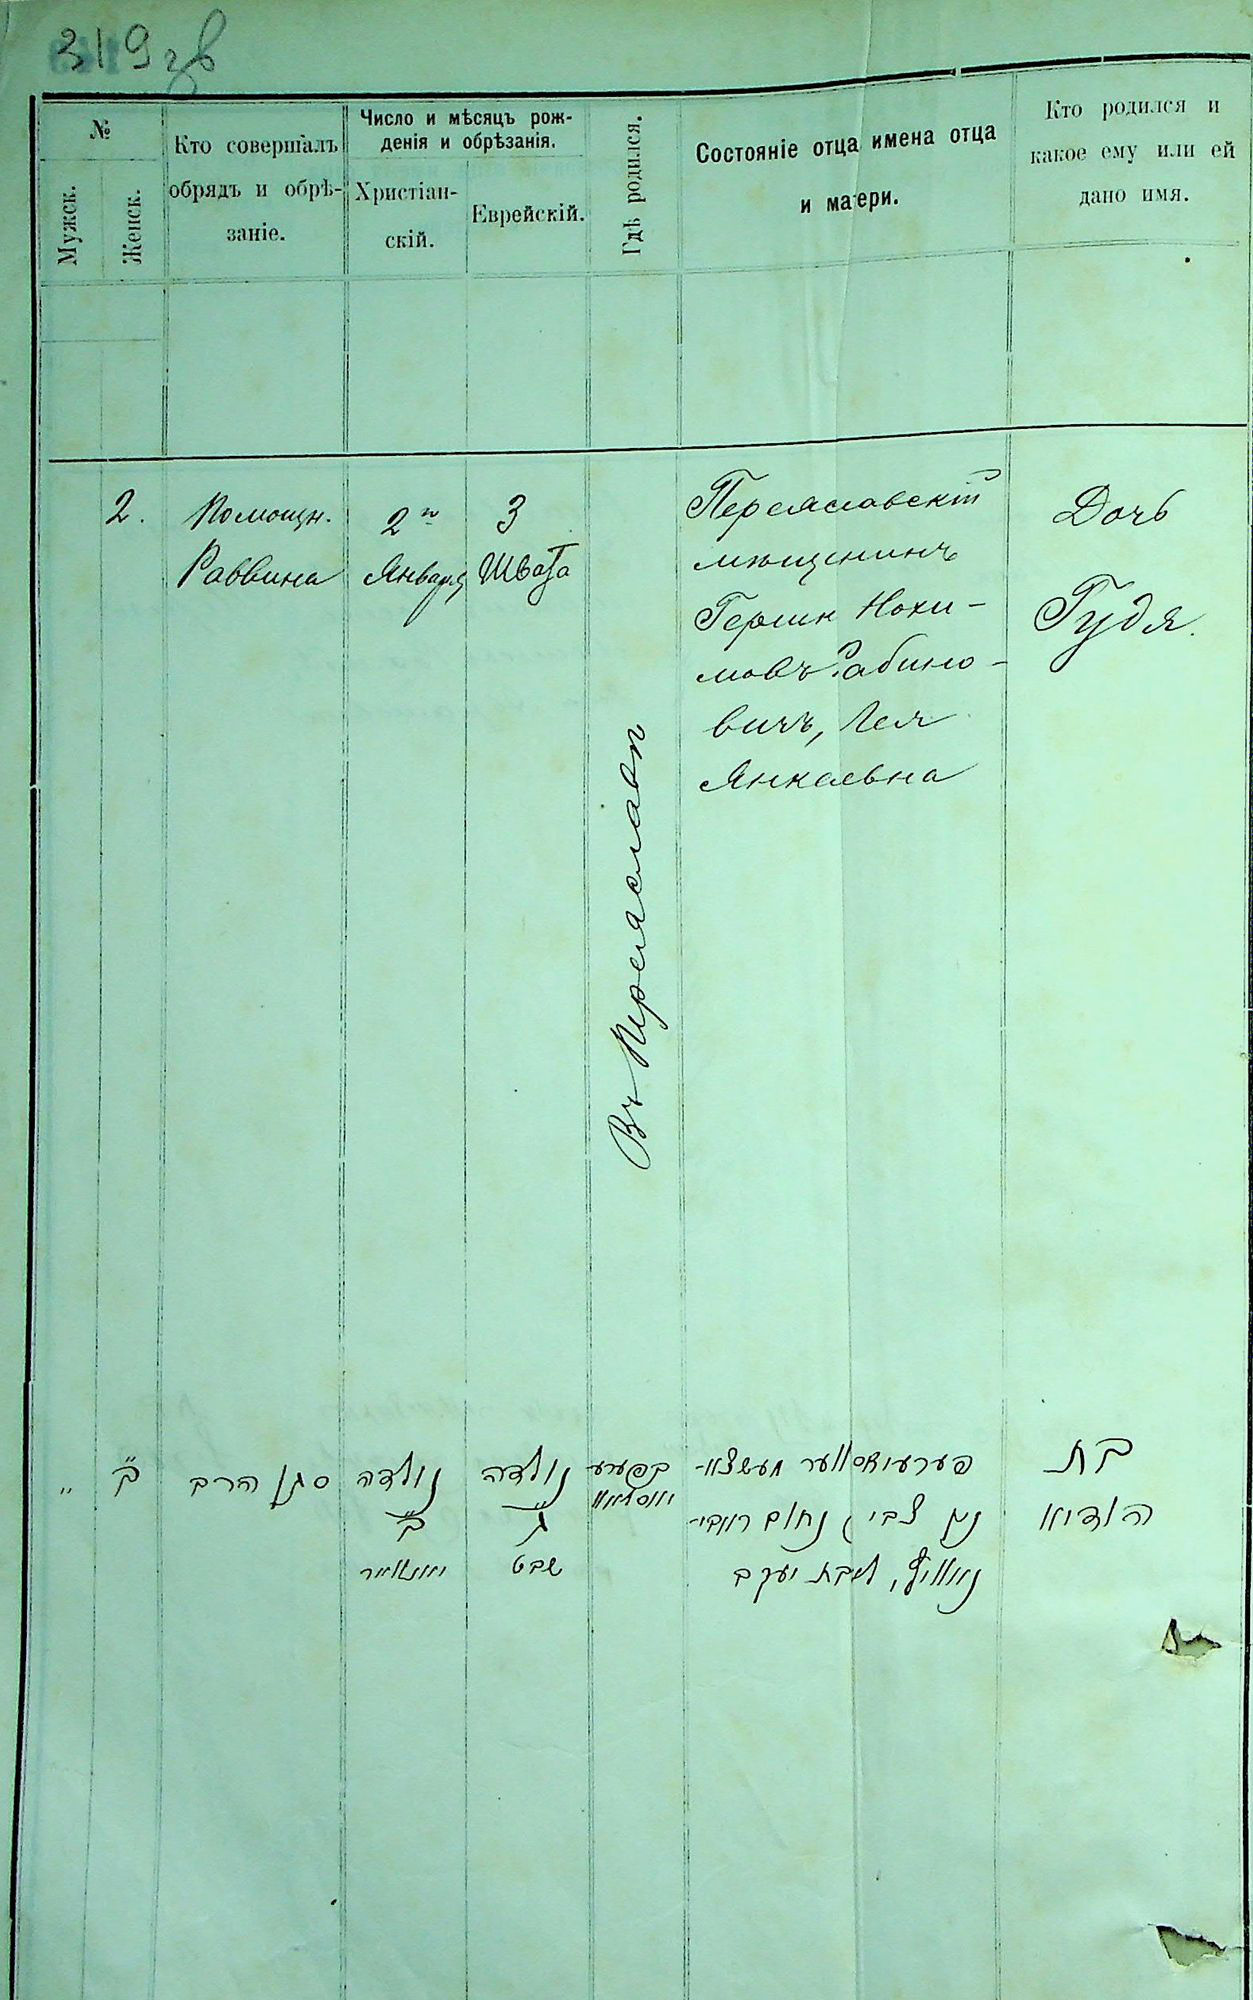 319 зв
№
Мужск.
Женск.
Кто совершалъ
обрядъ и обрѣ-
заніе.
Число и мѣсяцъ рож-
денія и обрѣзанія.
Христіан-
скій.
Еврейскій.
Гдѣ родился.
Состояніе отца имена отца
и матери.
Кто родился и
какое ему или ей
дано имя.
2.
Помощн.
Раввина
2го
Января
3
Швата
Въ Переяславѣ
Переяславскій
мѣщанинъ
Гершк Нохи-
мовъ Рабино-
вичъ, Лея
Янкелевна
Дочь
Гудя.
"
ב"
סגן הרב
נולדה
ב"
יאנואר
נולדה
ג"
שבט
בפערע
יאסלאוו
פערעיאסלווער מעשצא-
נין צבי נחום ראבי-
נאוויץ, לאה בת יעקב
בת
הודיא